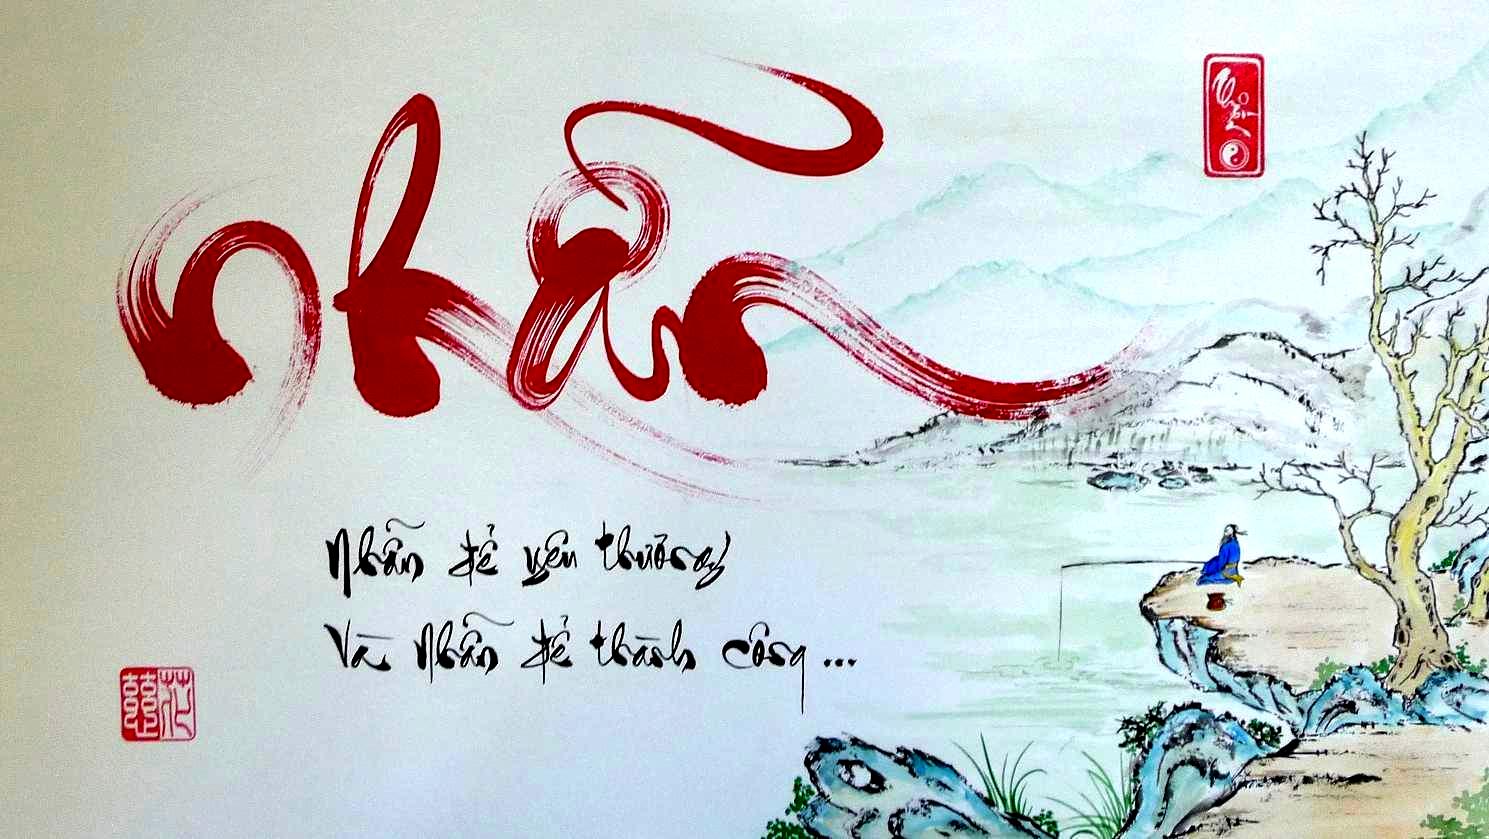 Nhẫn
Nhẫn để yêu thương
Và Nhẫn để thành công ...